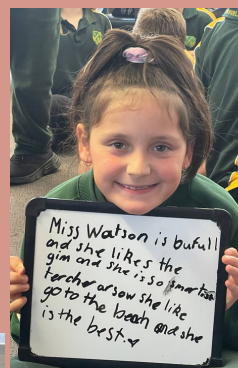 Miss Watson is bufull
and she likes the
gim and she is so smart
tercher arsow she like
go to the beach and she
is the best.